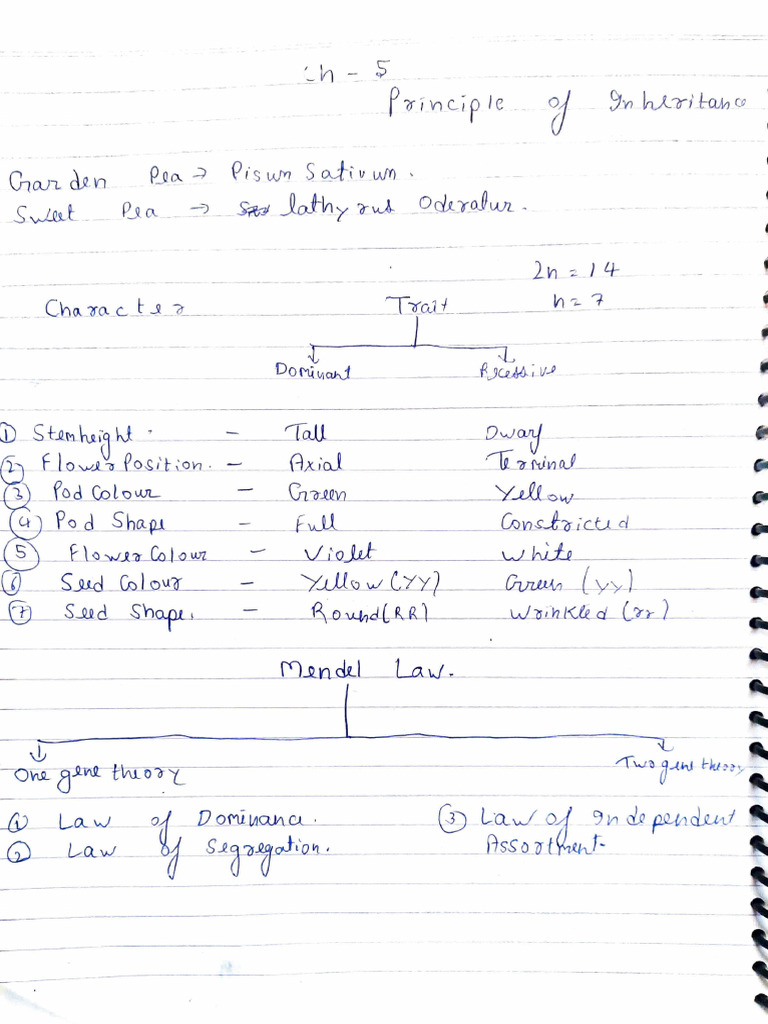 Ch - 5
Principle of Inheritance
Garden Pea → Pisum Sativum.
Sweet Pea → lathyrus Oderatur.
2n = 14
Character Trait n = 7
Dominant Recessive
① Stemheight - Tall Dwarf
② Flower Position. - Axial Terminal
③ Pod Colour - Green Yellow
④ Pod Shape - Full Constricted
⑤ Flower Colour - Violet White
⑥ Seed Colour - Yellow (YY) Green (yy)
⑦ Seed Shape. - Round (RR) Wrinkled (rr)
Mendel Law.
One gene theory Two gene theory
① Law of Dominance. ③ Law of Independent
② Law of Segregation. Assortment.